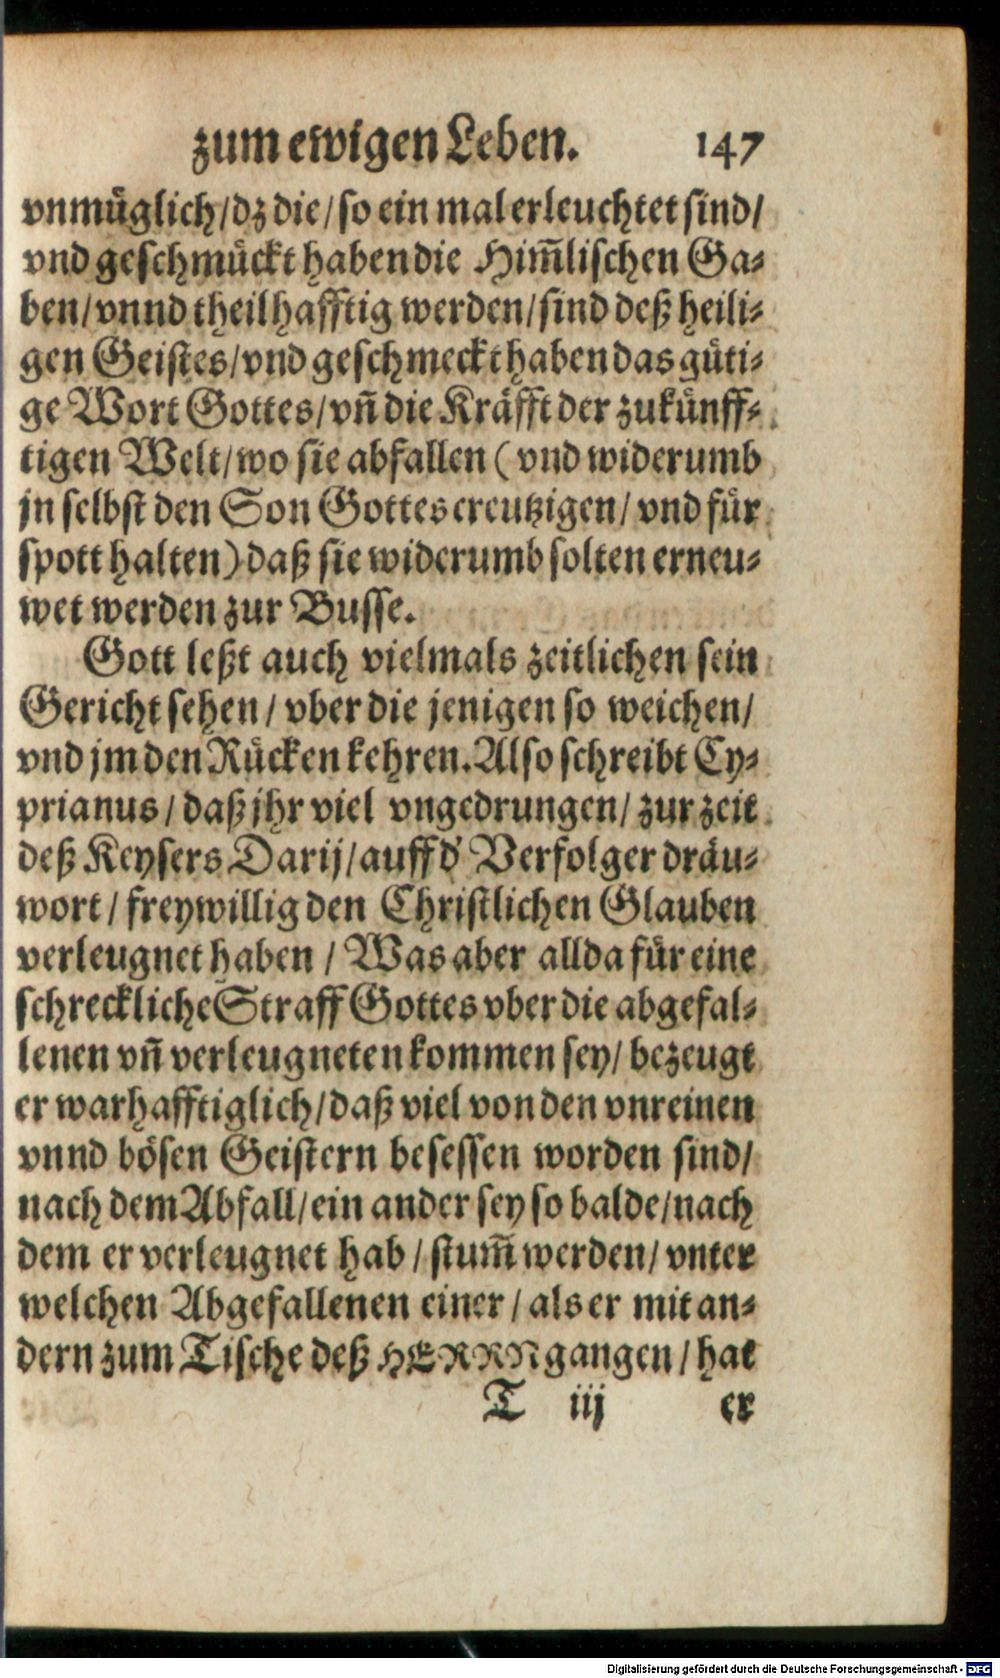 zum ewigen Leben. 147
vnmüglich/dz die/so ein mal erleuchtet sind/
vnd geschmückt haben die Him̃lischen Ga-
ben/vnnd theilhafftig werden/sind deß heili-
gen Geistes/vnd geschmeckt haben das güti-
ge Wort Gottes/vñ die Kräfft der zukünff-
tigen Welt/wo sie abfallen (vnd widerumb
jn selbst den Son Gottes creutzigen/vnd für
spott halten) daß sie widerumb solten erneu-
wet werden zur Busse.
Gott leßt auch vielmals zeitlichen sein
Gericht sehen/vber die jenigen so weichen/
vnd jm den Rücken kehren. Also schreibt Cy-
prianus/daß jhr viel vngedrungen/zur zeit
deß Keysers Darij/auff d' Verfolger dräu-
wort/freywillig den Christlichen Glauben
verleugnet haben/Was aber allda für eine
schreckliche Straff Gottes vber die abgefal-
lenen vñ verleugneten kommen sey/bezeugt
er warhafftiglich/daß viel von den vnreinen
vnnd bösen Geistern besessen worden sind/
nach dem Abfall/ein ander sey so balde/nach
dem er verleugnet hab/stum̃ werden/vnter
welchen Abgefallenen einer/als er mit an-
dern zum Tische deß HERRN gangen/hat
T iij er
Digitalisierung gefördert durch die Deutsche Forschungsgemeinschaft - DFG